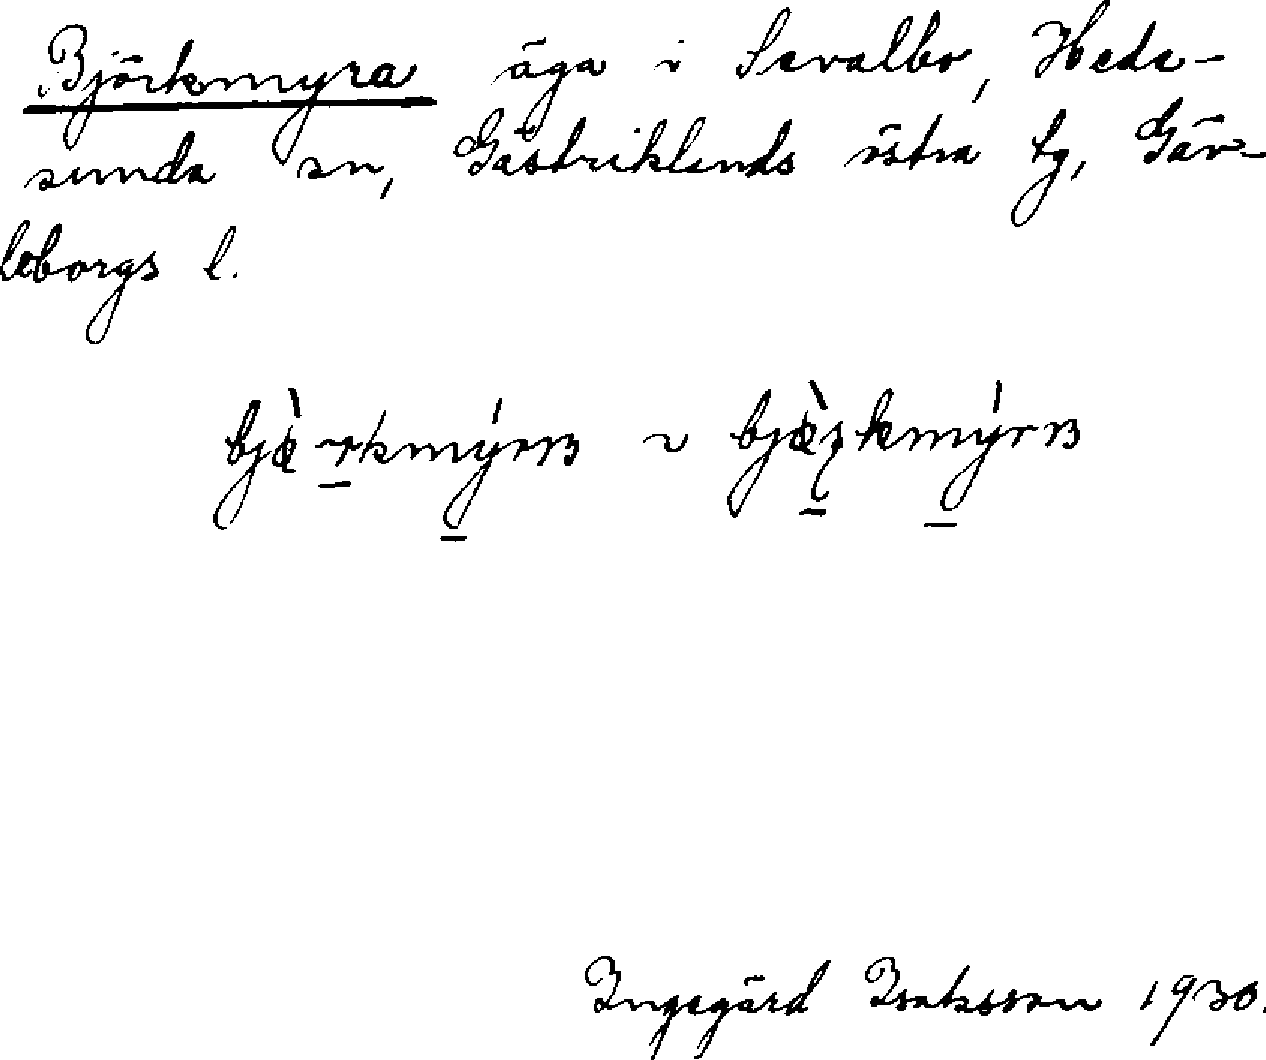 Björkmyra äga i Sevallbo, Hede-
sunda sn, Gästriklands östra tg, Gäv-
leborgs l.
Ingegärd Isaksson 1930.